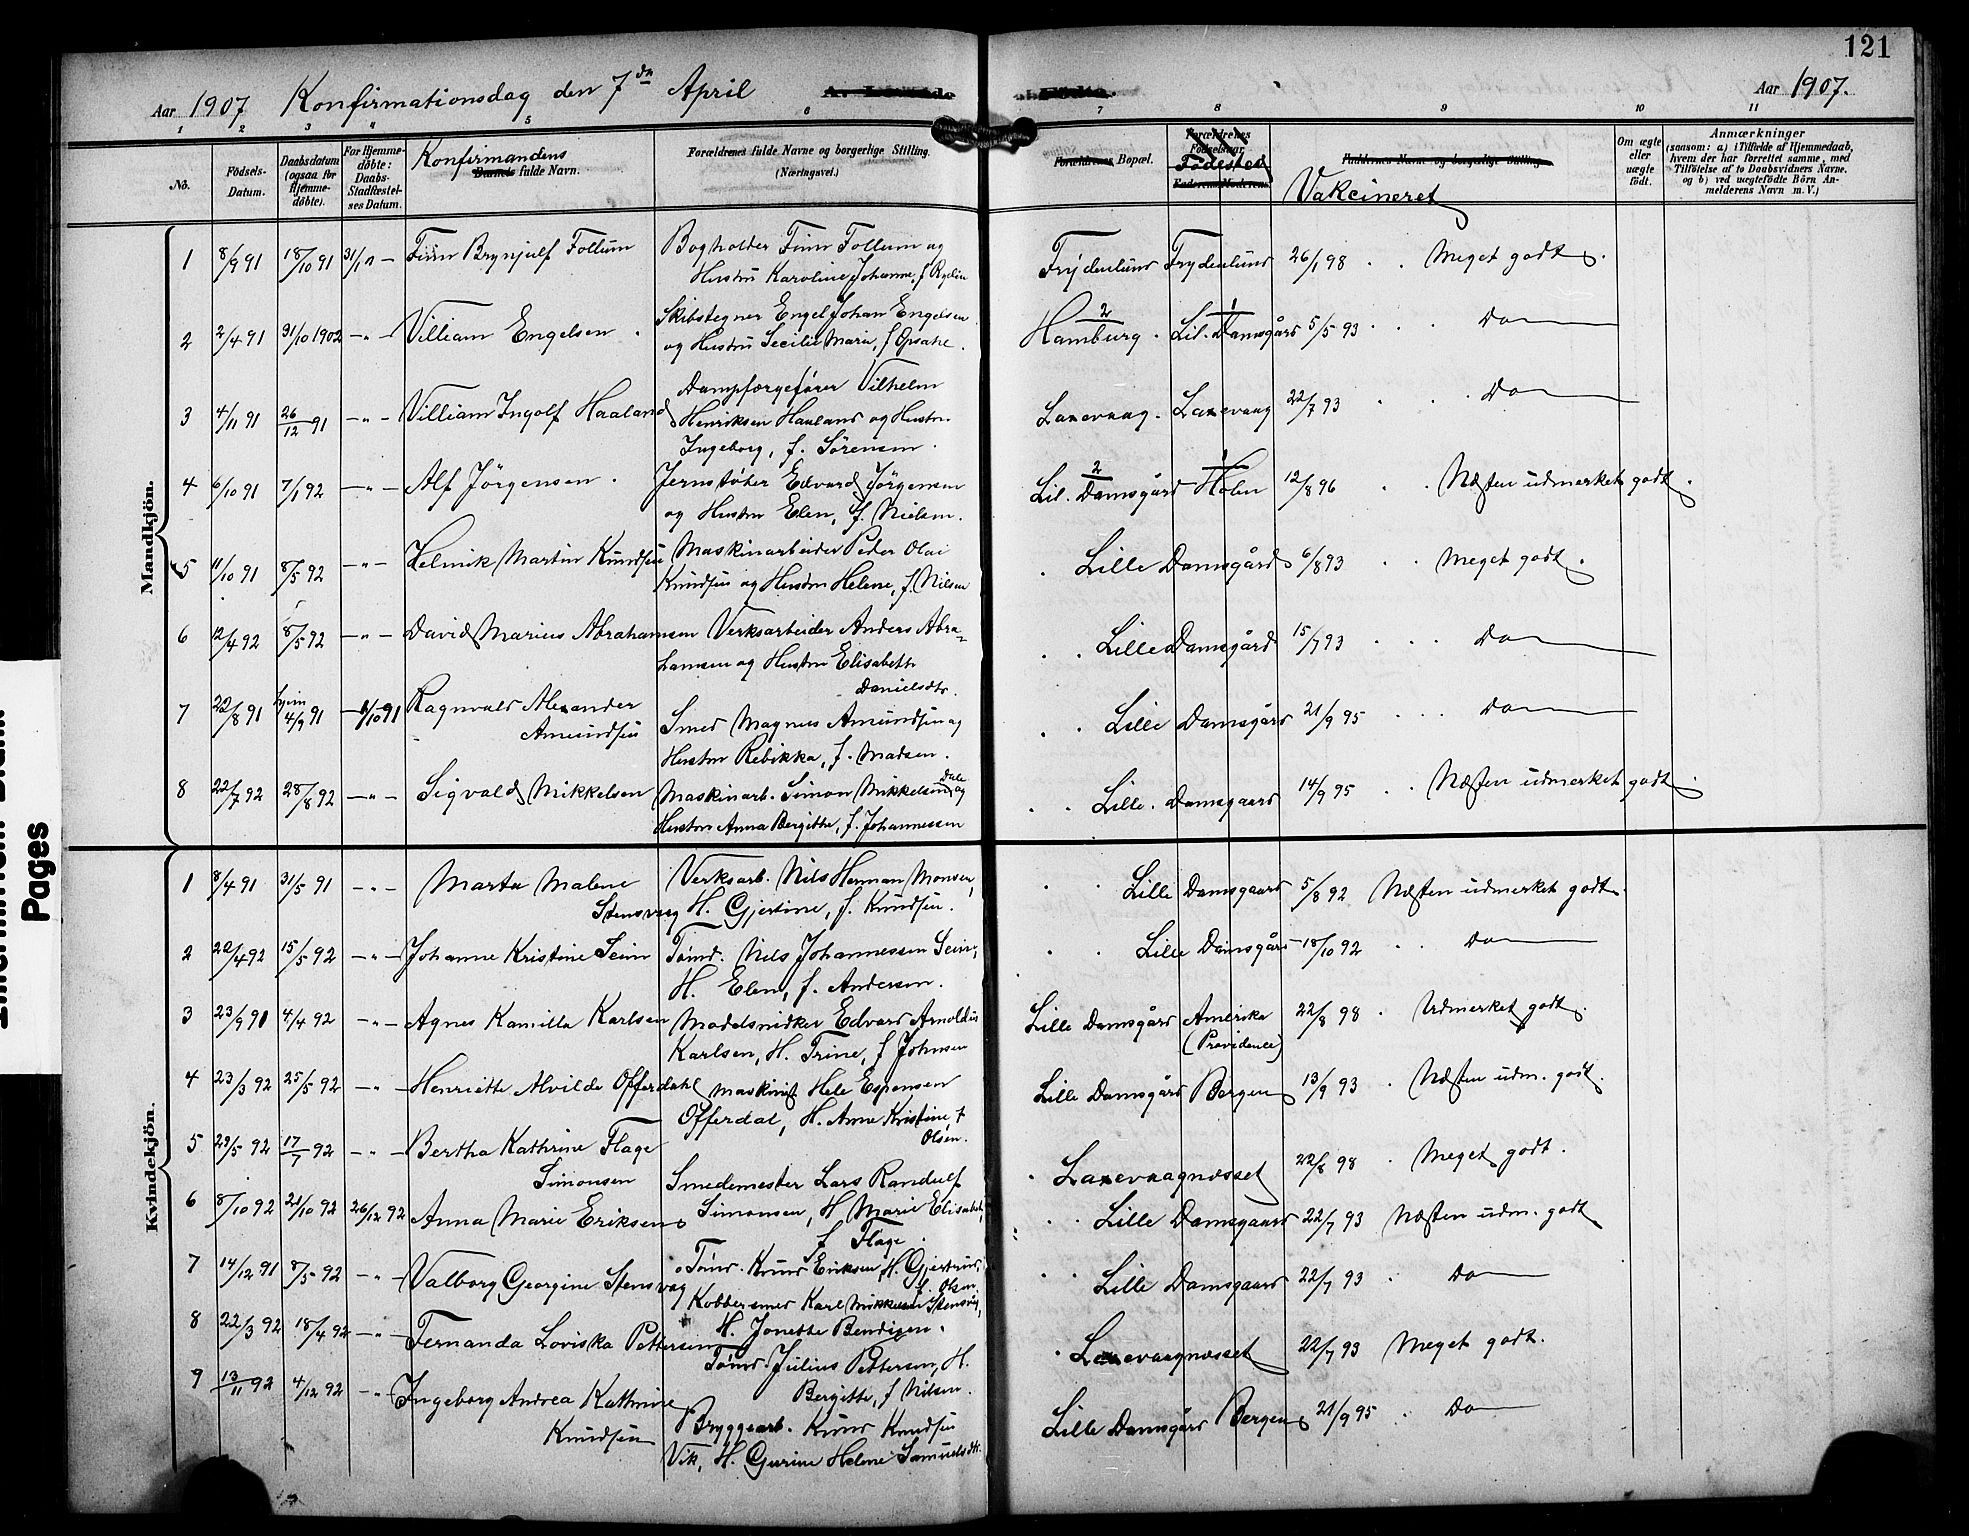 121
Aar 1907 Konfirmationsdag den 7de April Aar 1907.
1 2 3 4 5 6 7 8 9 10 11
No.
Födsels-Datum.
Daabsdatum (ogsaa for Hjemme-döbte).
For Hjemme-döbte: Daabs-Stadfæstel-ses Datum.
Konfirmandens Barnets fulde Navn.
Forældrenes fulde Navne og borgerlige Stilling. (Næringsvei.)
Forældrenes Bopæl.
Forældrenes Födselsaar. Födested Faderens Moderens
Faddernes Navne og borgerlige Stilling. Vakcineret
Om ægte eller uægte födt.
Anmærkninger (saasom: a) i Tilfælde af Hjemmedaab, hvem der har forrettet samme, med Tilföielse af to Daabsvidners Navne, og b) ved uægtefödte Börn An-melderens Navn m. V.)
Mandkjön.
1 8/9 91 18/10 91 Finn Brynjulf Follum Bogholder Finn Follum og
Hustru Karoline Johanne, f. Frydenlund Frydenlund 26/1 98 Meget godt.
2 2/4 91 31/10 1902 -"- Villiam Engelsen. Skibstegner Engel Johan Engelsen
og Hustru Secilie Marie, f. Opsahl. 2 Hamburg. 1 Lil. Damsgård 5/5 93 Do
3 4/11 91 26/12 91 -"- Villiam Ingolf Haaland Dampfærgefører Vilhelm
Henriksen Haaland og Hustru
Ingeborg, f. Sørensen. Laxevaag. Laxevaag 22/7 93 Do
4 6/10 91 7/1 92 -"- Alf Jörgensen. Jernstøber Edvard Jörgensen
og Hustru Elen, f. Nielsen. 2 Lil. Damsgård 1 Holen 12/8 96 Næsten udmerket godt.
5 11/10 91 8/5 92 -"- Helmik Martin Knudsen Maskinarbeider Peder Olai
Knudsen og Hustru Helene, f. Nilsen Lille Damsgård 6/8 93 Meget godt.
6 12/4 92 8/5 92 -"- David Marius Abrahamsen Verksarbeider Anders Abra-
hamsen og Hustru Elisabeth
Danielsdtr. Lille Damsgård 15/7 93 Do
7 22/8 91 hjem 4/9 91 11/10 91 Ragnvald Alexander
Amundsen Smed Magnus Amundsen og
Hustru Rebikka, f. Madsen. Lille Damsgård 21/9 95 Do
8 22/7 92 28/8 92 -"- Sigvald Mikkelsen Maskinarb. Simon Mikkelsen Dale og
Hustru Anna Bergitte, f. Johannessen Lille. Damsgaard 14/9 95 Næsten udmerket godt.
Kvindekjön.
1 8/4 91 31/5 91 -"- Marta Malene
Stensvag Verksarb. Nils Herman Monsen,
H. Gjertine, f. Knudsen. Lille Damsgaard 5/8 92 Næsten udmerket godt.
2 22/4 92 15/5 92 -"- Johanne Kristine Seim Tømd. Nils Johannessen Seim,
H. Elen, f. Andersen. Lille Damsgård 18/10 92 Do
3 23/9 91 4/4 92 -"- Agnes Kamilla Karlsen Modelsnidker Edvard Arnoldus
Karlsen, H. Trine, f. Johnsen Lille Damsgård Amerika
(Providence) 22/8 98 Udmerket godt.
4 23/3 92 25/5 92 -"- Henriette Alvilde Offerdahl Maskinist Hele Espensen
Offerdal, H. Anne Kristine, f.
Olsen. Lille Damsgård Bergen 13/9 93 Næsten udm. godt.
5 29/5 92 17/7 92 -"- Bertha Kathrine Flage
Simonsen Smedemester Lars Randulf
Simonsen, H. Marie Elisabet,
f. Flage. Laxevaagnæsset 22/8 98 Meget godt.
6 8/10 92 21/10 92 26/12 92 Anna Marie Eriksen Tømd. Knud Eriksen, H. Gjertrud,
f. Olsen Lille Damsgaard 22/7 93 Næsten udm. godt
7 14/12 91 8/5 92 -"- Valborg Georgine Stensvag Kobbersmed Karl Mikkelsen Stensvåg,
H. Jonette Bendixen. Lille Damsgaard 22/7 93 Do
8 22/3 92 18/4 92 -"- Fernanda Loviska Pettersen Tømd. Julius Pettersen, H.
Bergitte, f. Nilsen. Laxevaagnæsset 22/7 93 Meget godt.
9 13/11 92 4/12 92 -"- Ingeborg Andrea Kathrine
Knudsen Bryggearb. Knud Knudsen
Vik, H. Gurine Helene Samuelsdtr. Lille Damsgård Bergen 21/9 95 Do
Pages